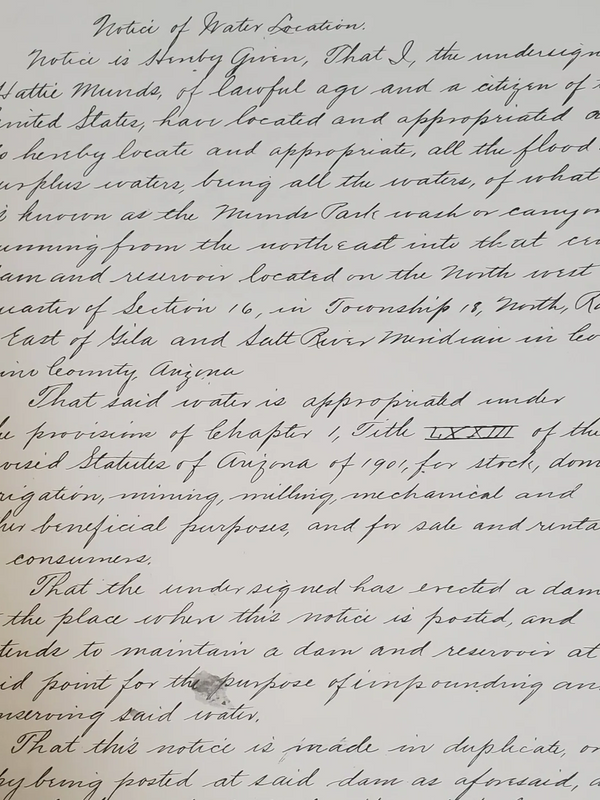 Notice of Water Location.
Notice is Hereby Given, That I, the undersign
Hattie Munds, of lawful age and a citizen of t
United States, have located and appropriated a
o hereby locate and appropriate, all the flood
urplus waters, being all the waters, of what
s known as the Munds Park wash or canyon
unning from the northeast into that cer
am and reservoir located on the North west
uarter of Section 16, in Township 18, North, Ra
East of Gila and Salt River Meridian in Co
ino County, Arizona
That said water is appropriated under
he provisions of Chapter 1, Title LXXIII of the
vised Statutes of Arizona of 1901, for stock, dom
rigation, mining, milling, mechanical and
her beneficial purposes, and for sale and renta
consumers.
That the undersigned has erected a dam
the place where this notice is posted, and
tends to maintain a dam and reservoir at
id point for the purpose of impounding an
nserving said water.
That this notice is made in duplicate, on
py being posted at said dam as aforesaid, a